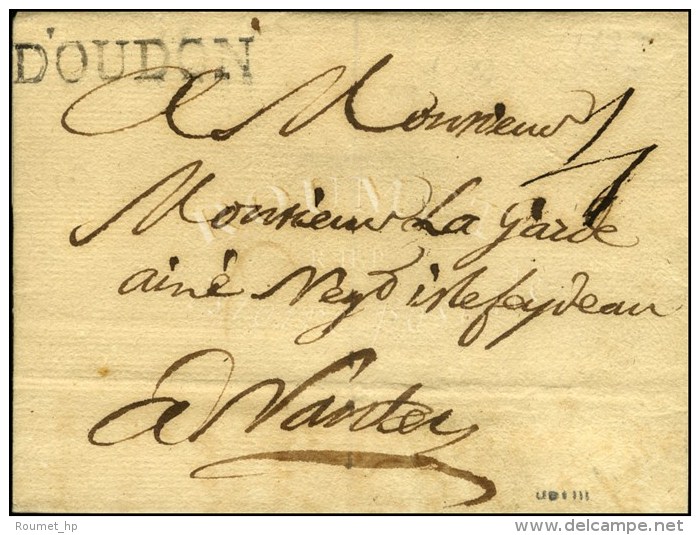 D'OUDON
A Monsieur
Monsieur La Garde
ainé Negt isle feydeau
A Nantes
Roumet_hp
©delcampe.net